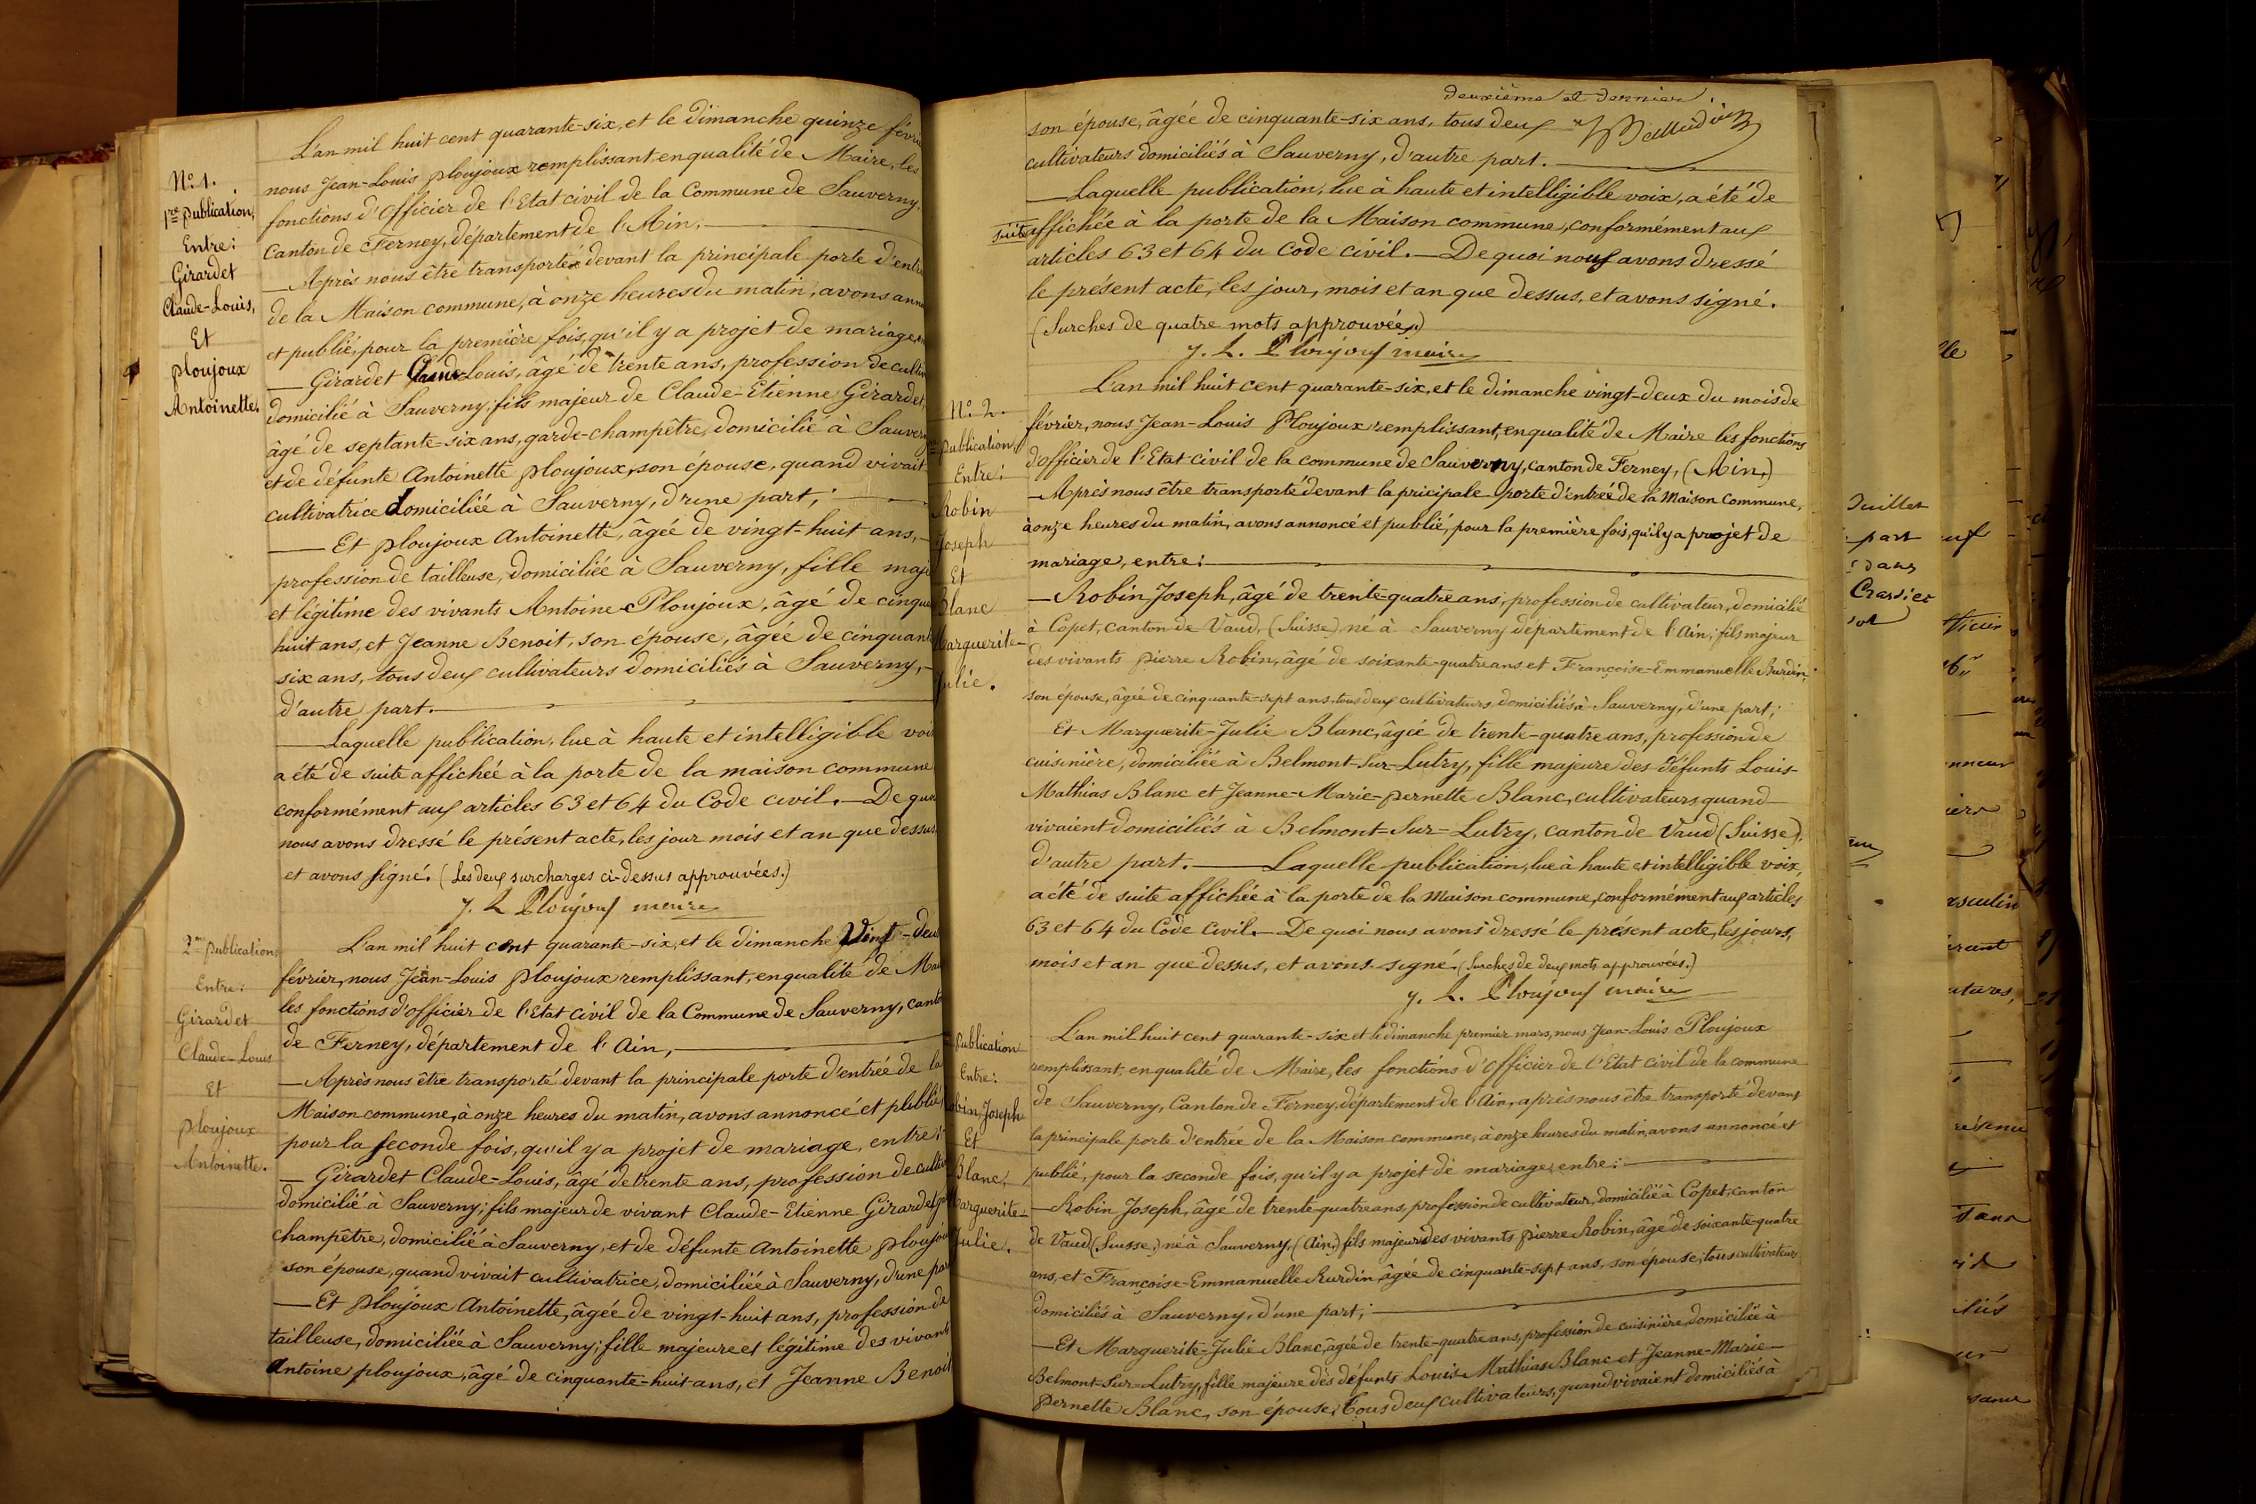 L'an mil huit cent quarante-six, et le dimanche quinze févri
nous Jean-Louis Ploujoux remplissant en qualité de Maire, les
fonctions d'Officier de l'Etat civil de la Commune de Sauverny,
Canton de Ferney, département de l'Ain,
N°. 1.
1re Publication,
Entre:
Girardet
Claude-Louis,
Et
Ploujoux
Antoinette.
— Après nous être transporté devant la principale porte d'entré
de la Maison commune, à onze heures du matin, avons anno
et publié, pour la première fois, qu'il y a projet de mariage, en
— Girardet Claude-Louis, âgé de trente ans, profession de cultiv
domicilié à Sauverny; fils majeur de Claude-Etienne Girardet,
âgé de septante-six ans, garde-champêtre, domicilié à Sauvern
et de défunte Antoinette Ploujoux, son épouse, quand vivait
cultivatrice domiciliée à Sauverny, d'une part;
— Et Ploujoux Antoinette, âgée de vingt-huit ans, —
profession de tailleuse, domiciliée à Sauverny, fille maje
et légitime des vivants Antoine Ploujoux, âgé de cinqua
huit ans, et Jeanne Benoit, son épouse, âgée de cinquant
six ans, tous deux cultivateurs domiciliés à Sauverny, —
d'autre part. —
— Laquelle publication, lue à haute et intelligible voix
a été de suite affichée à la porte de la maison commune
conformément aux articles 63 et 64 du Code civil. — De quoi
nous avons dressé le présent acte, les jour mois et an que dessus
et avons signé. (Les deux surcharges ci-dessus approuvées.)
J. L. Ploujoux maire
2me Publication
Entre:
Girardet
Claude-Louis
Et
Ploujoux
Antoinette.
L'an mil huit cent quarante-six, et le dimanche Vint-deux
février, nous Jean-Louis Ploujoux remplissant, en qualité de Mai
les fonctions d'officier de l'Etat civil de la Commune de Sauverny, canto
de Ferney, département de l'Ain, —
— Après nous être transporté devant la principale porte d'entrée de la
Maison commune, à onze heures du matin, avons annoncé et plublié,
pour la seconde fois, qu'il y a projet de mariage, entre:
— Girardet Claude-Louis, âgé de trente ans, profession de cultiv
domicilié à Sauverny; fils majeur de vivant Claude-Etienne Girardet, gar
champêtre, domicilié à Sauverny, et de défunte Antoinette Ploujou
son épouse, quand vivait cultivatrice, domiciliée à Sauverny, d'une par
— Et Ploujoux Antoinette, âgée de vingt-huit ans, profession de
tailleuse, domiciliée à Sauverny; fille majeure et légitime des vivants
Antoine Ploujoux, âgé de cinquante-huit ans, et Jeanne Benoit
deuxième et dernier.
son épouse, âgée de cinquante-six ans, tous deux
cultivateurs domiciliés à Sauverny, d'autre part. —
— Laquelle publication, lue à haute et intelligible voix, a été de
suite affichée à la porte de la Maison commune, conformément aux
articles 63 et 64 du Code civil. — De quoi nous avons dressé
le présent acte, les jour, mois et an que dessus, et avons signé.
(Surches de quatre mots approuvées.)
J. L. Ploujoux maire
N°. 2.
Publication
Entre:
Robin
Joseph
Et
Blanc
Marguerite-
Julie.
L'an mil huit cent quarante-six, et le dimanche vingt-deux du mois de
février, nous Jean-Louis Ploujoux remplissant, en qualité de Maire les fonctions
d'officier de l'Etat civil de la commune de Sauverny, canton de Ferney, (Ain,)
— Après nous être transporté devant la pricipale porte d'entrée de la Maison Commune,
à onze heures du matin, avons annoncé et publié, pour la première fois, qu'il y a projet de
mariage, entre: —
— Robin Joseph, âgé de trente-quatre ans, profession de cultivateur, domicilié
à Copet, canton de Vaud, (Suisse) né à Sauverny département de l'Ain; fils majeur
des vivants Pierre Robin, âgé de soixante-quatre ans et Françoise-Emmanuelle Burdin,
son épouse, âgée de cinquante-sept ans, tous deux cultivateurs, domiciliés à Sauverny, d'une part;
Et Marguerite-Julie Blanc, âgée de trente-quatre ans, profession de
cuisinière, domiciliée à Belmont-Sur-Lutry, fille majeure des défunts Louis-
Mathias Blanc et Jeanne-Marie-Pernette Blanc, cultivateurs quand
vivaient domiciliés à Belmont-Sur-Lutry, canton de Vaud (Suisse),
d'autre part. — Laquelle publication, lue à haute et intelligible voix,
a été de suite affichée à la porte de la Maison commune, conformément aux articles
63 et 64 du Code Civil. — De quoi nous avons dressé le présent acte, les jours,
mois et an que dessus, et avons signé. (Surches de deux mots approuvées.)
J. L. Ploujoux maire
Publication
Entre:
obin, Joseph
Et
Blanc,
Marguerite-
Julie.
L'an mil huit cent quarante-six et le dimanche premier mars, nous Jean-Louis Ploujoux
remplissant, en qualité de Maire, les fonctions d'Officier de l'Etat civil de la commune
de Sauverny, Canton de Ferney, département de l'Ain, après nous être transporté devant
la principale porte d'entrée de la Maison commune, à onze heures du matin, avons annoncé et
publié, pour la seconde fois, qu'il y a projet de mariage, entre: —
— Robin Joseph, âgé de trente-quatre ans, profession de cultivateur, domicilié à Copet, canton
de Vaud (Suisse,) né à Sauverny, (Ain,) fils majeur des vivants Pierre Robin, âgé de soixante-quatre
ans, et Françoise-Emmanuelle Burdin âgée de cinquante-sept ans, son épouse, tous cultivateurs
domiciliés à Sauverny, d'une part; —
— Et Marguerite-Julie Blanc, âgée de trente-quatre ans, profession de cuisinière, domiciliée à
Belmont-Sur-Lutry, fille majeure des défunts Louis-Mathias Blanc et Jeanne-Marie-
Pernette Blanc, son épouse, Tous deux cultivateurs, quand vivaient domiciliés à
Juillet
part
dans